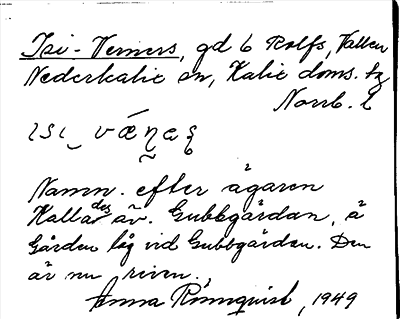 Isi-Verners, gd 6 Rolfs, Vallen
Nederkalix sn, Kalix doms. tg
Norrb. l
ɩsɩ‿ vǽņeȩ
Namn. efter ägaren
Kallades äv. Gubbgårdan, å
Gården låg vid Gubbgården. Den
är nu riven.
Anna Rönnqvist, 1949